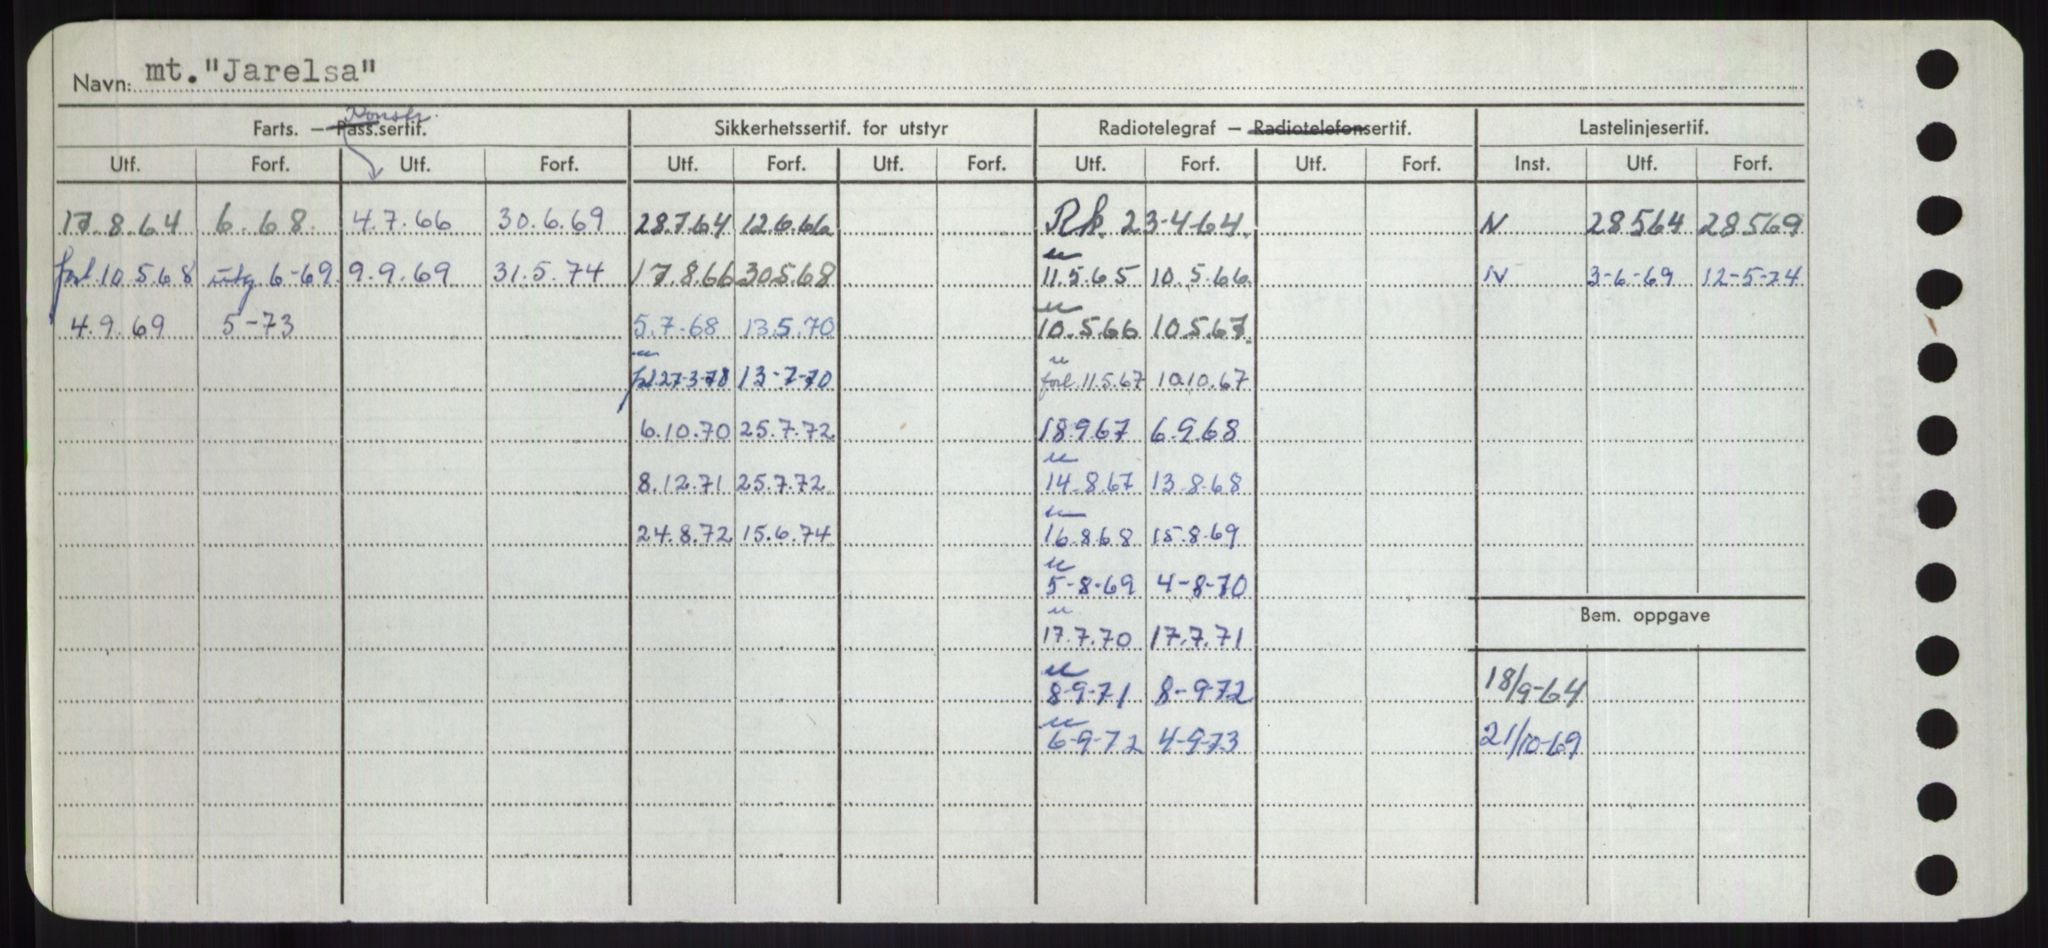 Navn: mt."Jarelsa"
Konstr.
Farts. — Pass.sertif. Sikkerhetssertif. for utstyr Radiotelegraf — Radiotelefonsertif. Lastelinjesertif.
Utf. Forf. Utf. Forf. Utf. Forf. Utf. Forf. Utf. Forf. Utf. Forf. Inst. Utf. Forf.
17.8.64 6.68. 4.7.66 30.6.69 28.7.64 12.6.66 Rk. 23-4-64. N 28564 28569
forl. 10.5.68 utg. 6-69. 9.9.69 31.5.74 17.8.66 30.5.68 11.5.65 10.5.66 N 3-6-69 12-5-74
4.9.69 5-73 5.7.68 13.5.70 10.5.66 10.5.67.
27-3-70 13-7-70 forl. 11.5.67 10.10.67
6.10.70 25.7.72 18.967 6.968
8.12.71 25.7.72 14.8.67 13.8.68
24.8.72 15.6.74 16.868 15.8.69
5-8-69 4-8-70
Bem. oppgave
17.7.70 17.7.71
8-9-71 8-9-72 18/9-64
6-9-72 4-9-73 21/10-69